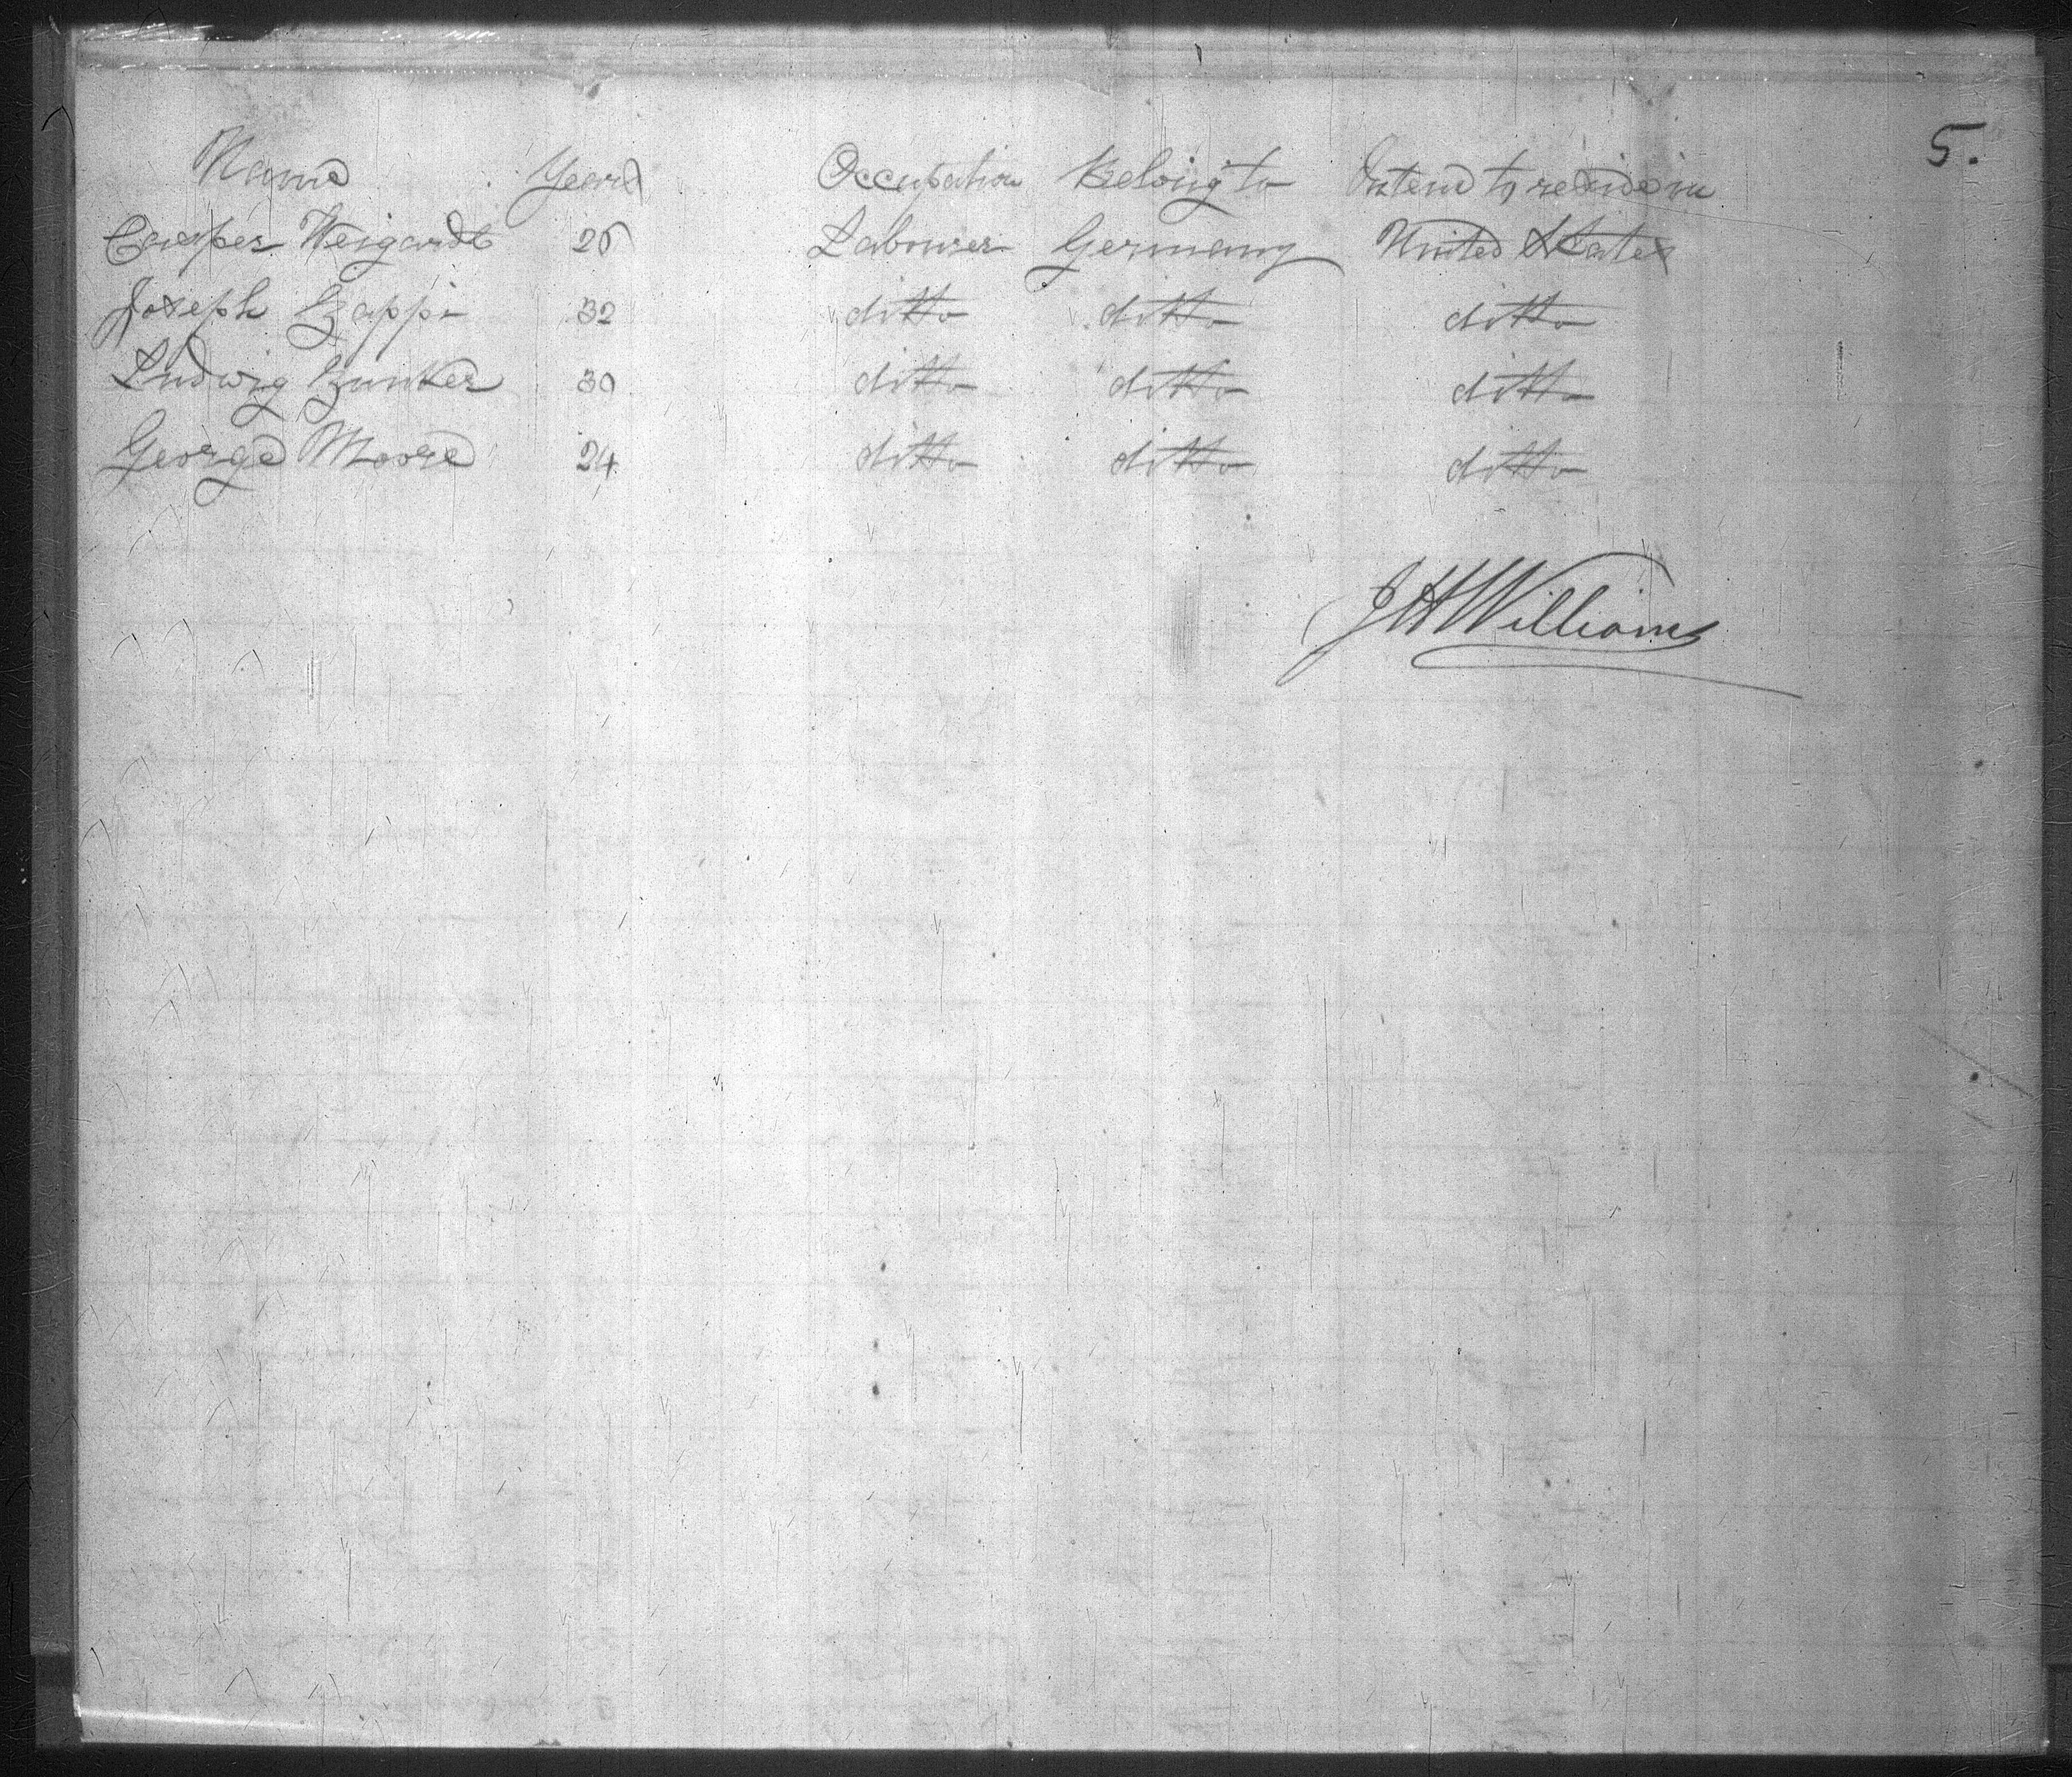 5.
Name Years Occupation Belong to Intend to reside in
Casper Weigardt 26 Labourer Germany United States
Joseph Zappi 32 ditto ditto ditto
Ludwig Zunker 30 ditto ditto ditto
George Moore 24 ditto ditto ditto
J H Williams